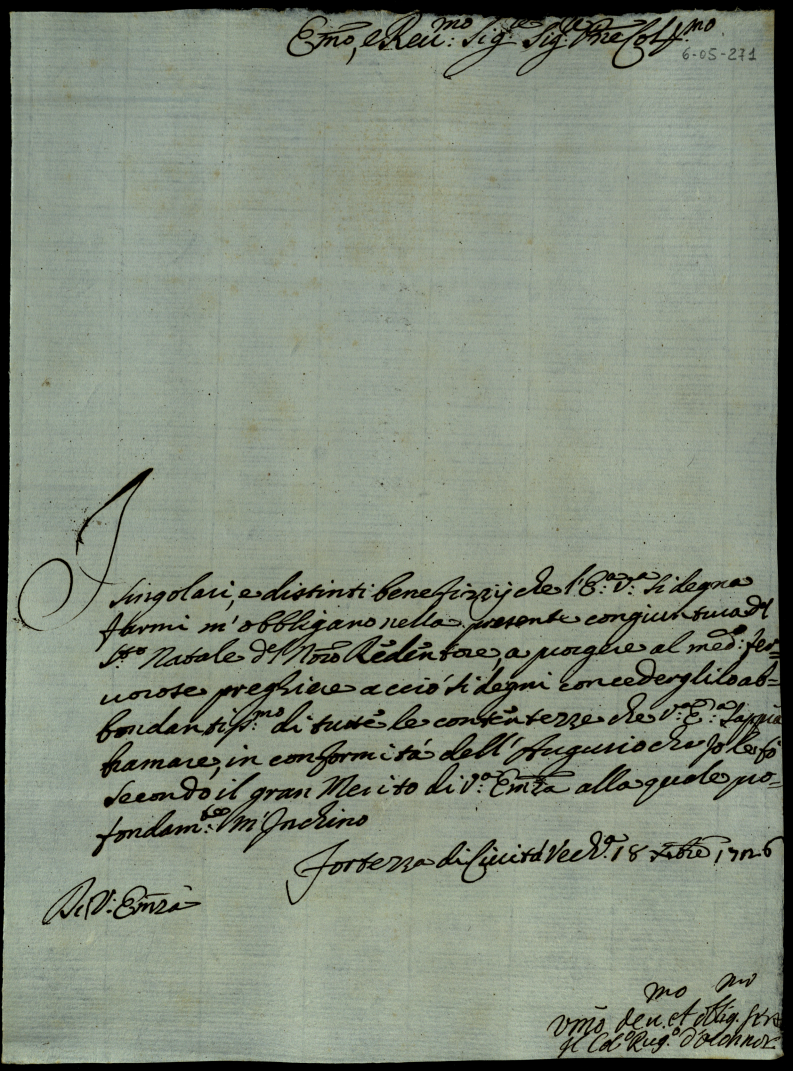 Emo, e Reu:mo Sig:re Sig:re Pne Col:mo
6-05-271
I
Singolari, e distinti benefizzij che l'E:a V:a si degna
farmi m'obbligano nella presente congiuntura del
S:to Natale del Nro Redentore, a porgere al med:o fer=
uorose preghiere acciò si degni concederglilo ab=
bondantiss:mo di tutte le contentezze che V:a E:a sappia
bramare, in conformità dell'Augurio che Io le fò
secondo il gran Merito di V:a Emza alla quale pro=
fondam:te m'Inchino
Fortezza di Ciuità Vecch:a 18 Xbre 1726
Di V: Emza
Vmo deu:mo et obblig:mo
Il